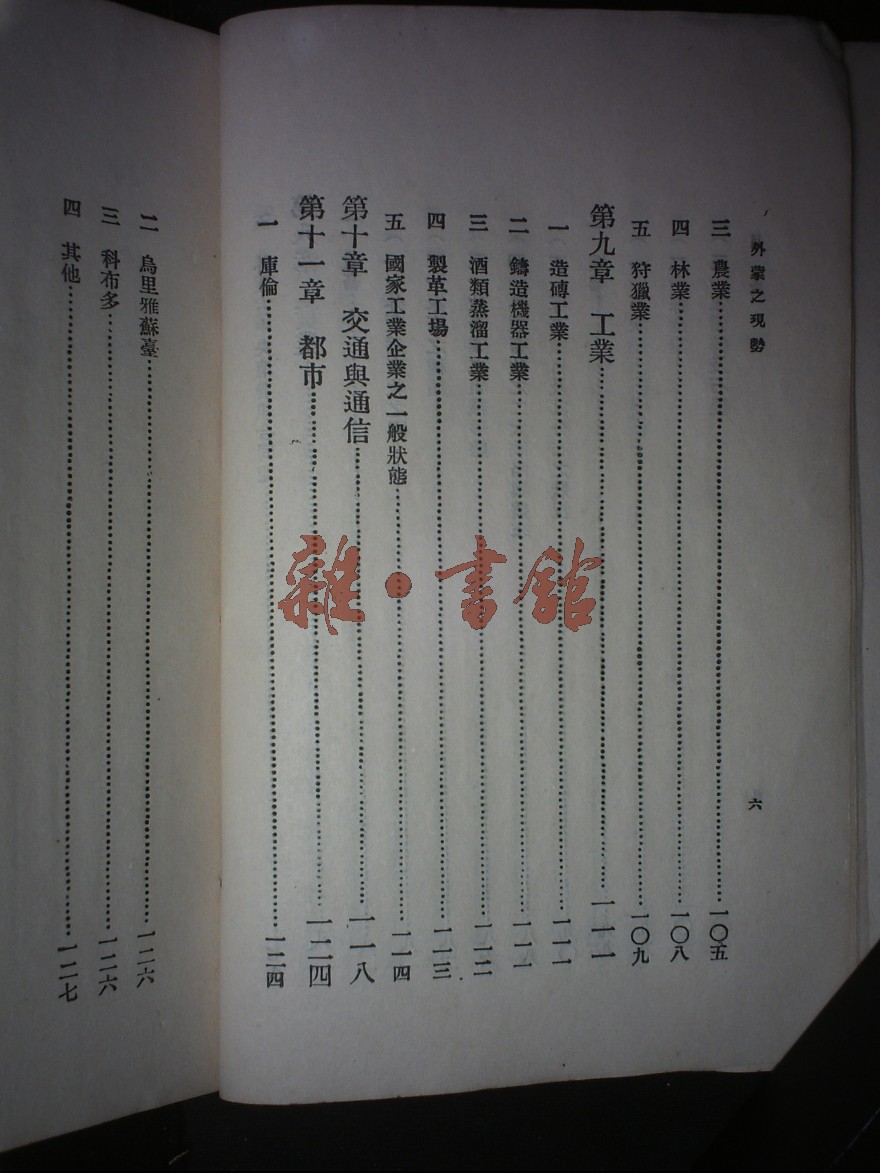 外蒙之現勢
六
三 農業 一〇五
四 林業 一〇八
五 狩獵業 一〇九
第九章 工業 一一一
一 造磚工業 一一一
二 鑄造機器工業 一一一
三 酒類蒸溜工業 一一二
四 製革工場 一一三
五 國家工業企業之一般狀態 一一四
第十章 交通與通信 一一八
第十一章 都市 一二四
一 庫倫 一二四
二 烏里雅蘇臺 一二六
三 科布多 一二六
四 其他 一二七
雜·書館